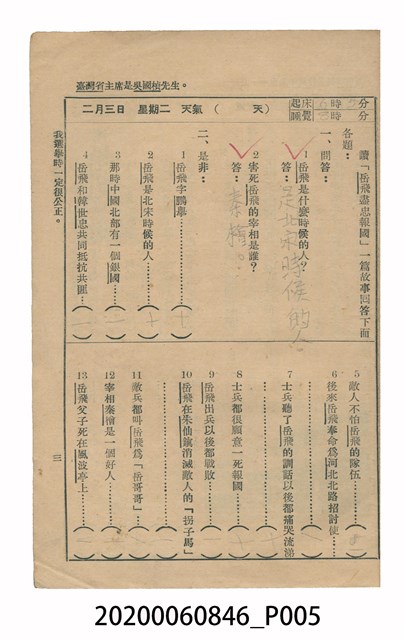 臺灣省主席是吳國楨先生。
二月三日 星期二 天氣（ 天） 起床 時 分
睡覺 時 分
讀「岳飛盡忠報國」一篇故事回答下面
各題：
一、問答：
1 岳飛是什麼時候的人？
答：是北宋時候的人
2 害死岳飛的宰相是誰？
答：秦檜。
二、是非：
1 岳飛字鵬舉………（十）
2 岳飛是北宋時候的人……（十）
3 那時中國北部有一個銀國……（一）
4 岳飛和韓世忠共同抵抗共匪…（一）
5 敵人不怕岳飛的隊伍………（一）
6 後來岳飛奉命爲河北北路招討使…（ ）
7 士兵聽了岳飛的訓話以後都痛哭流涕（ ）
8 士兵都很願意一死報國………（十）
9 岳飛出兵以後都戰敗………（一）
10 岳飛在朱仙鎭消滅敵人的「拐子馬」（十）
11 敵兵都叫岳飛爲「岳哥哥」……（一）
12 宰相秦檜是一個好人………（一）
13 岳飛父子死在風波亭上………（十）
我選舉時一定很公正。
三
20200060846_P005